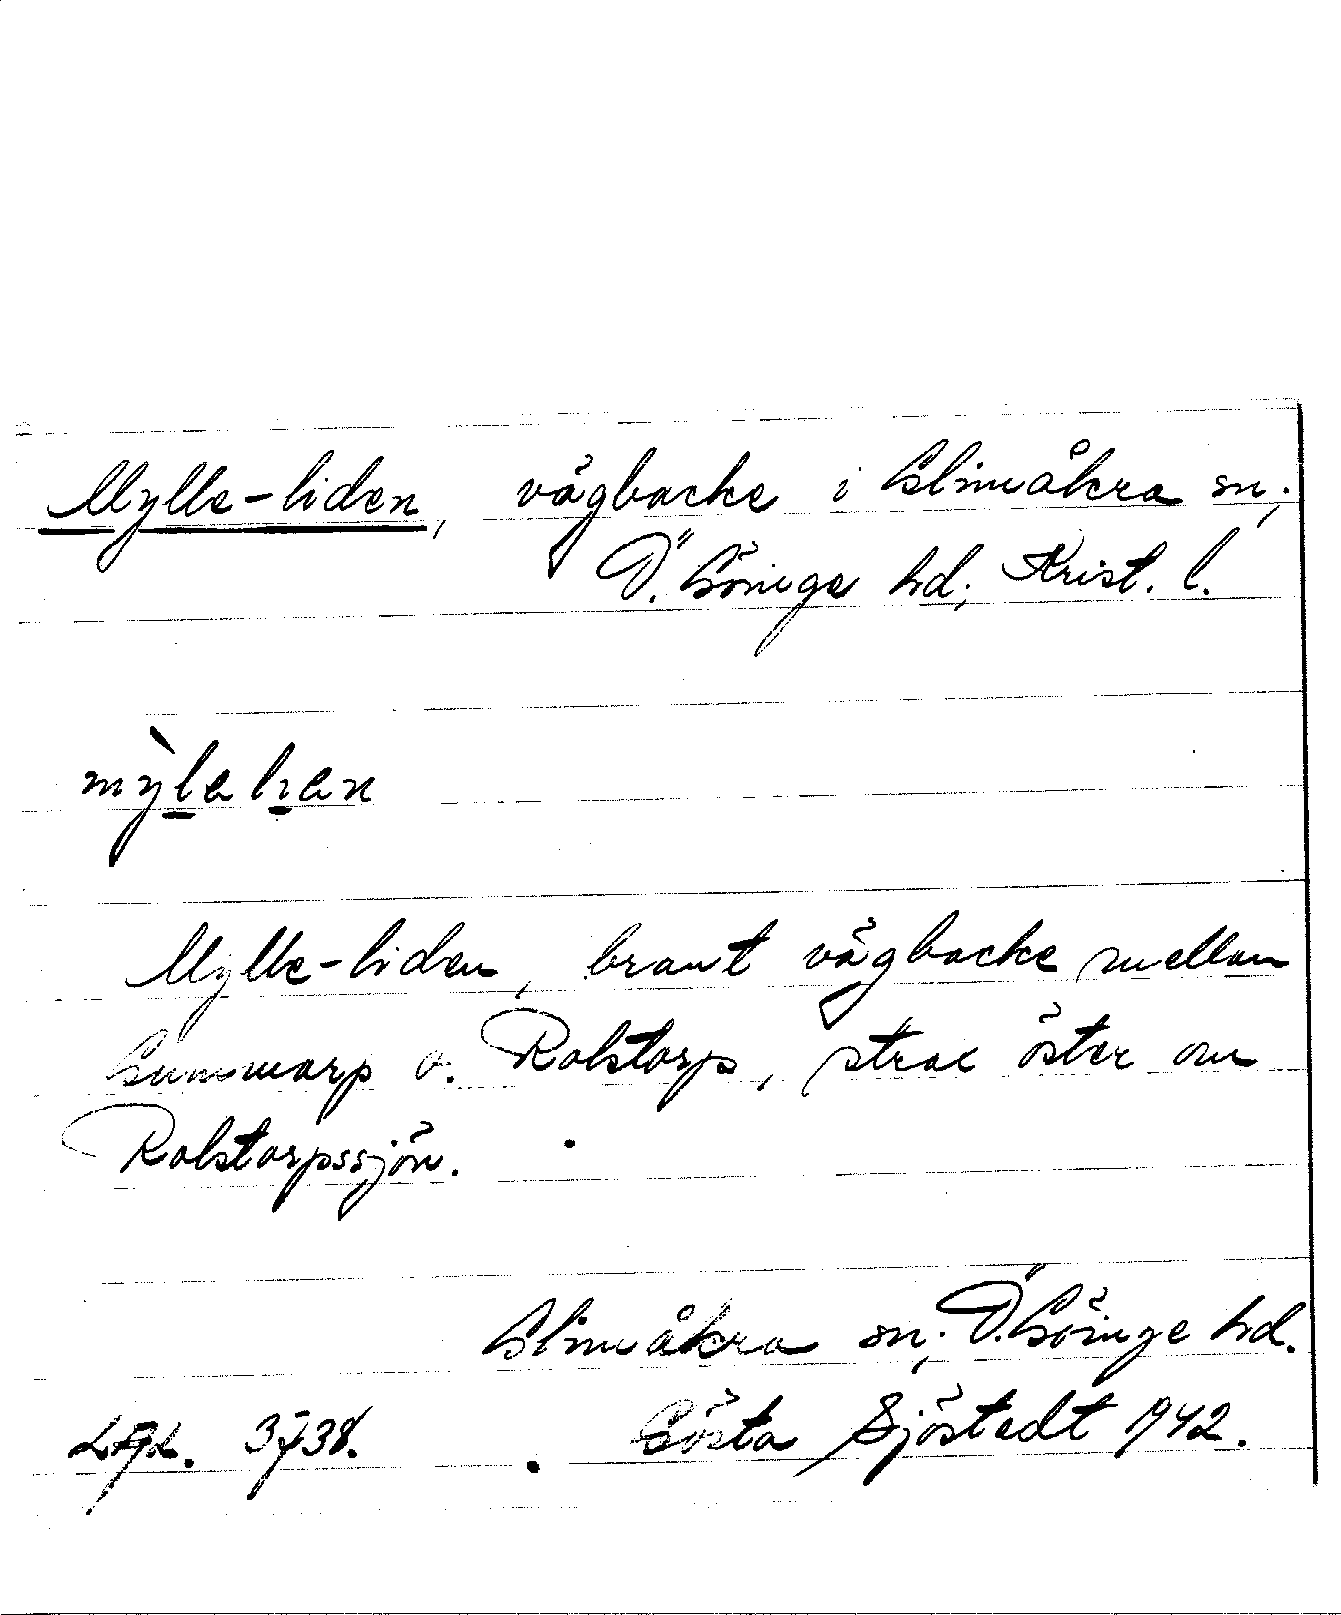 Mylle-liden, vägbacke i Glimåkra sn;
Ö. Göinge hd; Krist. l.
Mylle-liden, brant vägbacke mellan
Gummarp o. Rolstorp, strax öster om
Rolstorpssjön.
Glimåkra sn; Ö. Göinge hd.
Gösta Sjöstedt 1942.